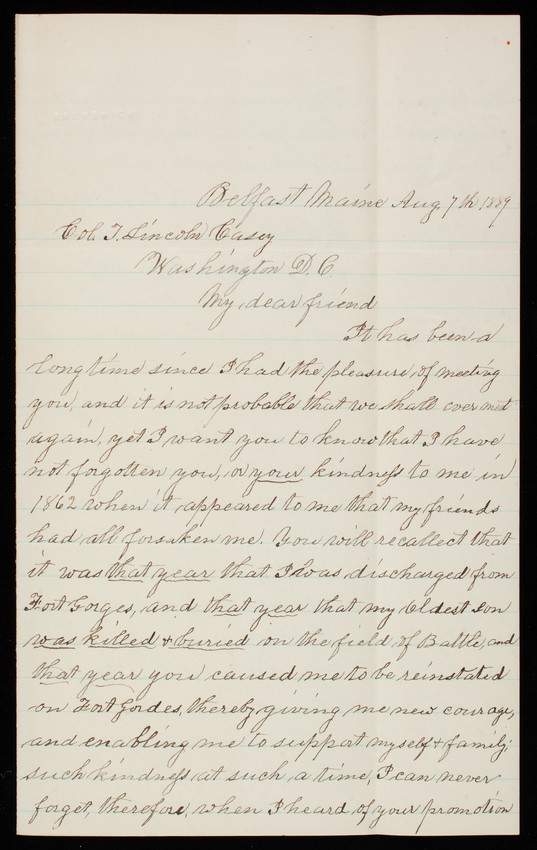 Belfast Maine Aug 7th 1889
Col. T. Lincoln Casey
Washington D.C.
My dear friend
It has been a
long time since I had the pleasure of meeting
you, and it is not probable that we shall ever meet
again, yet I want you to know that I have
not forgotten you, or your kindness to me in
1862 when it appeared to me that my friends
had all forsaken me. You will recallect that
it was that year that I was discharged from
Fort Gorges, and that year that my oldest son
was killed & buried on the field of Battle, and
that year you caused me to be reinstated
on Fort Gordes, thereby giving me new courage,
and enabling me to support myself & family;
such kindness at such a time, I can never
forget, therefore, when I heard of your promotion